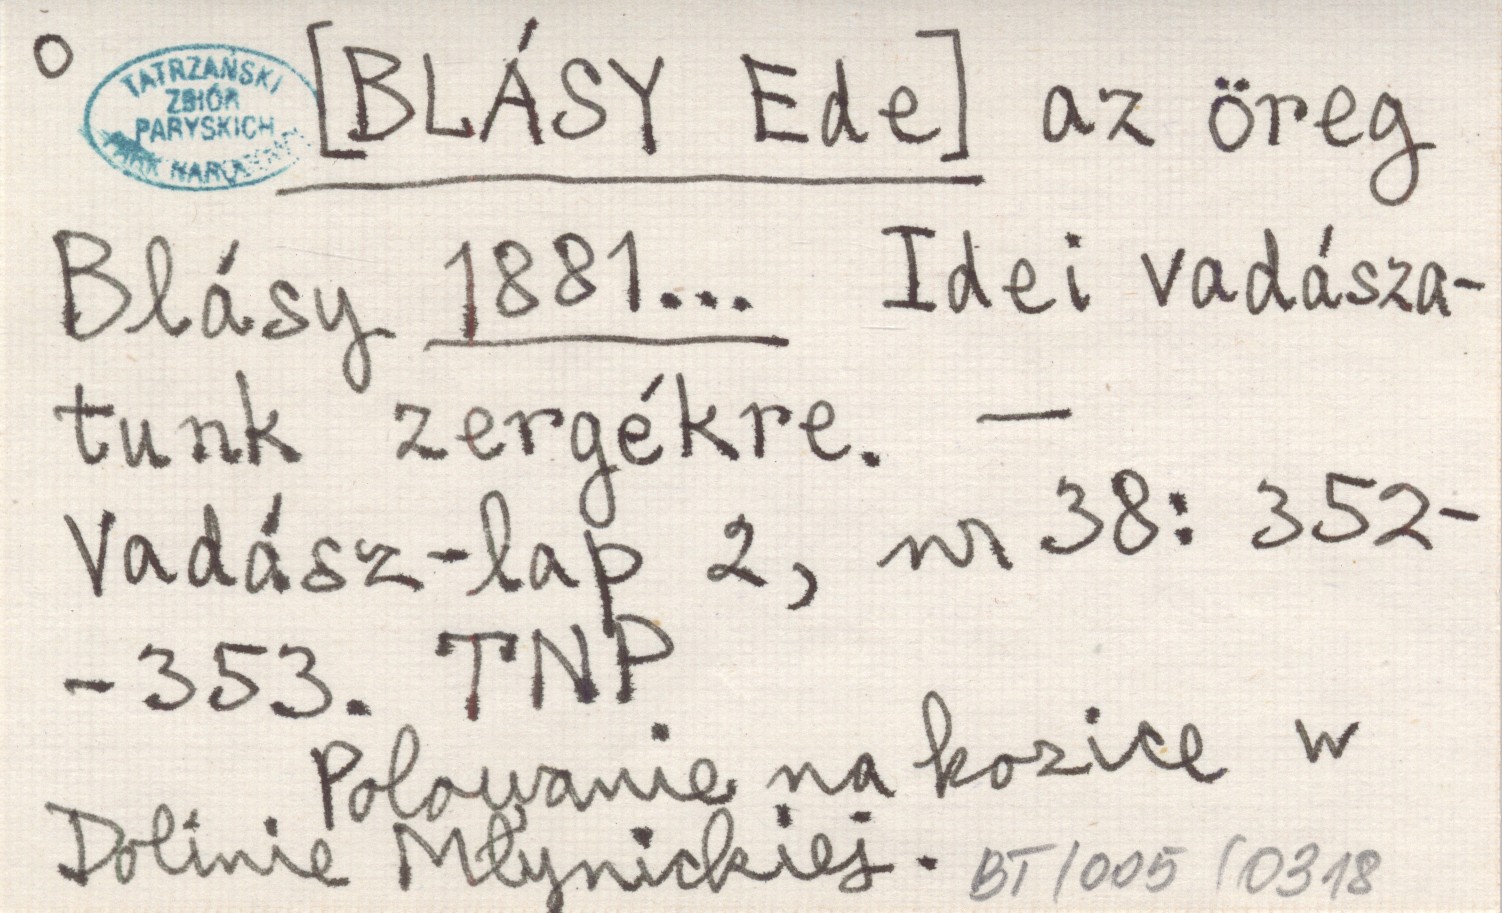 o
TATRZAŃSKI
ZBIÓR
PARYSKICH
PARK NARODOWY
[BLÁSY Ede] az öreg
Blásy 1881... Idei vadásza-
tunk zergékre. —
Vadász-lap 2, nr 38: 352-
-353. TNP
Polowanie na kozice w
Dolinie Młynickiej.
BT/005/0318